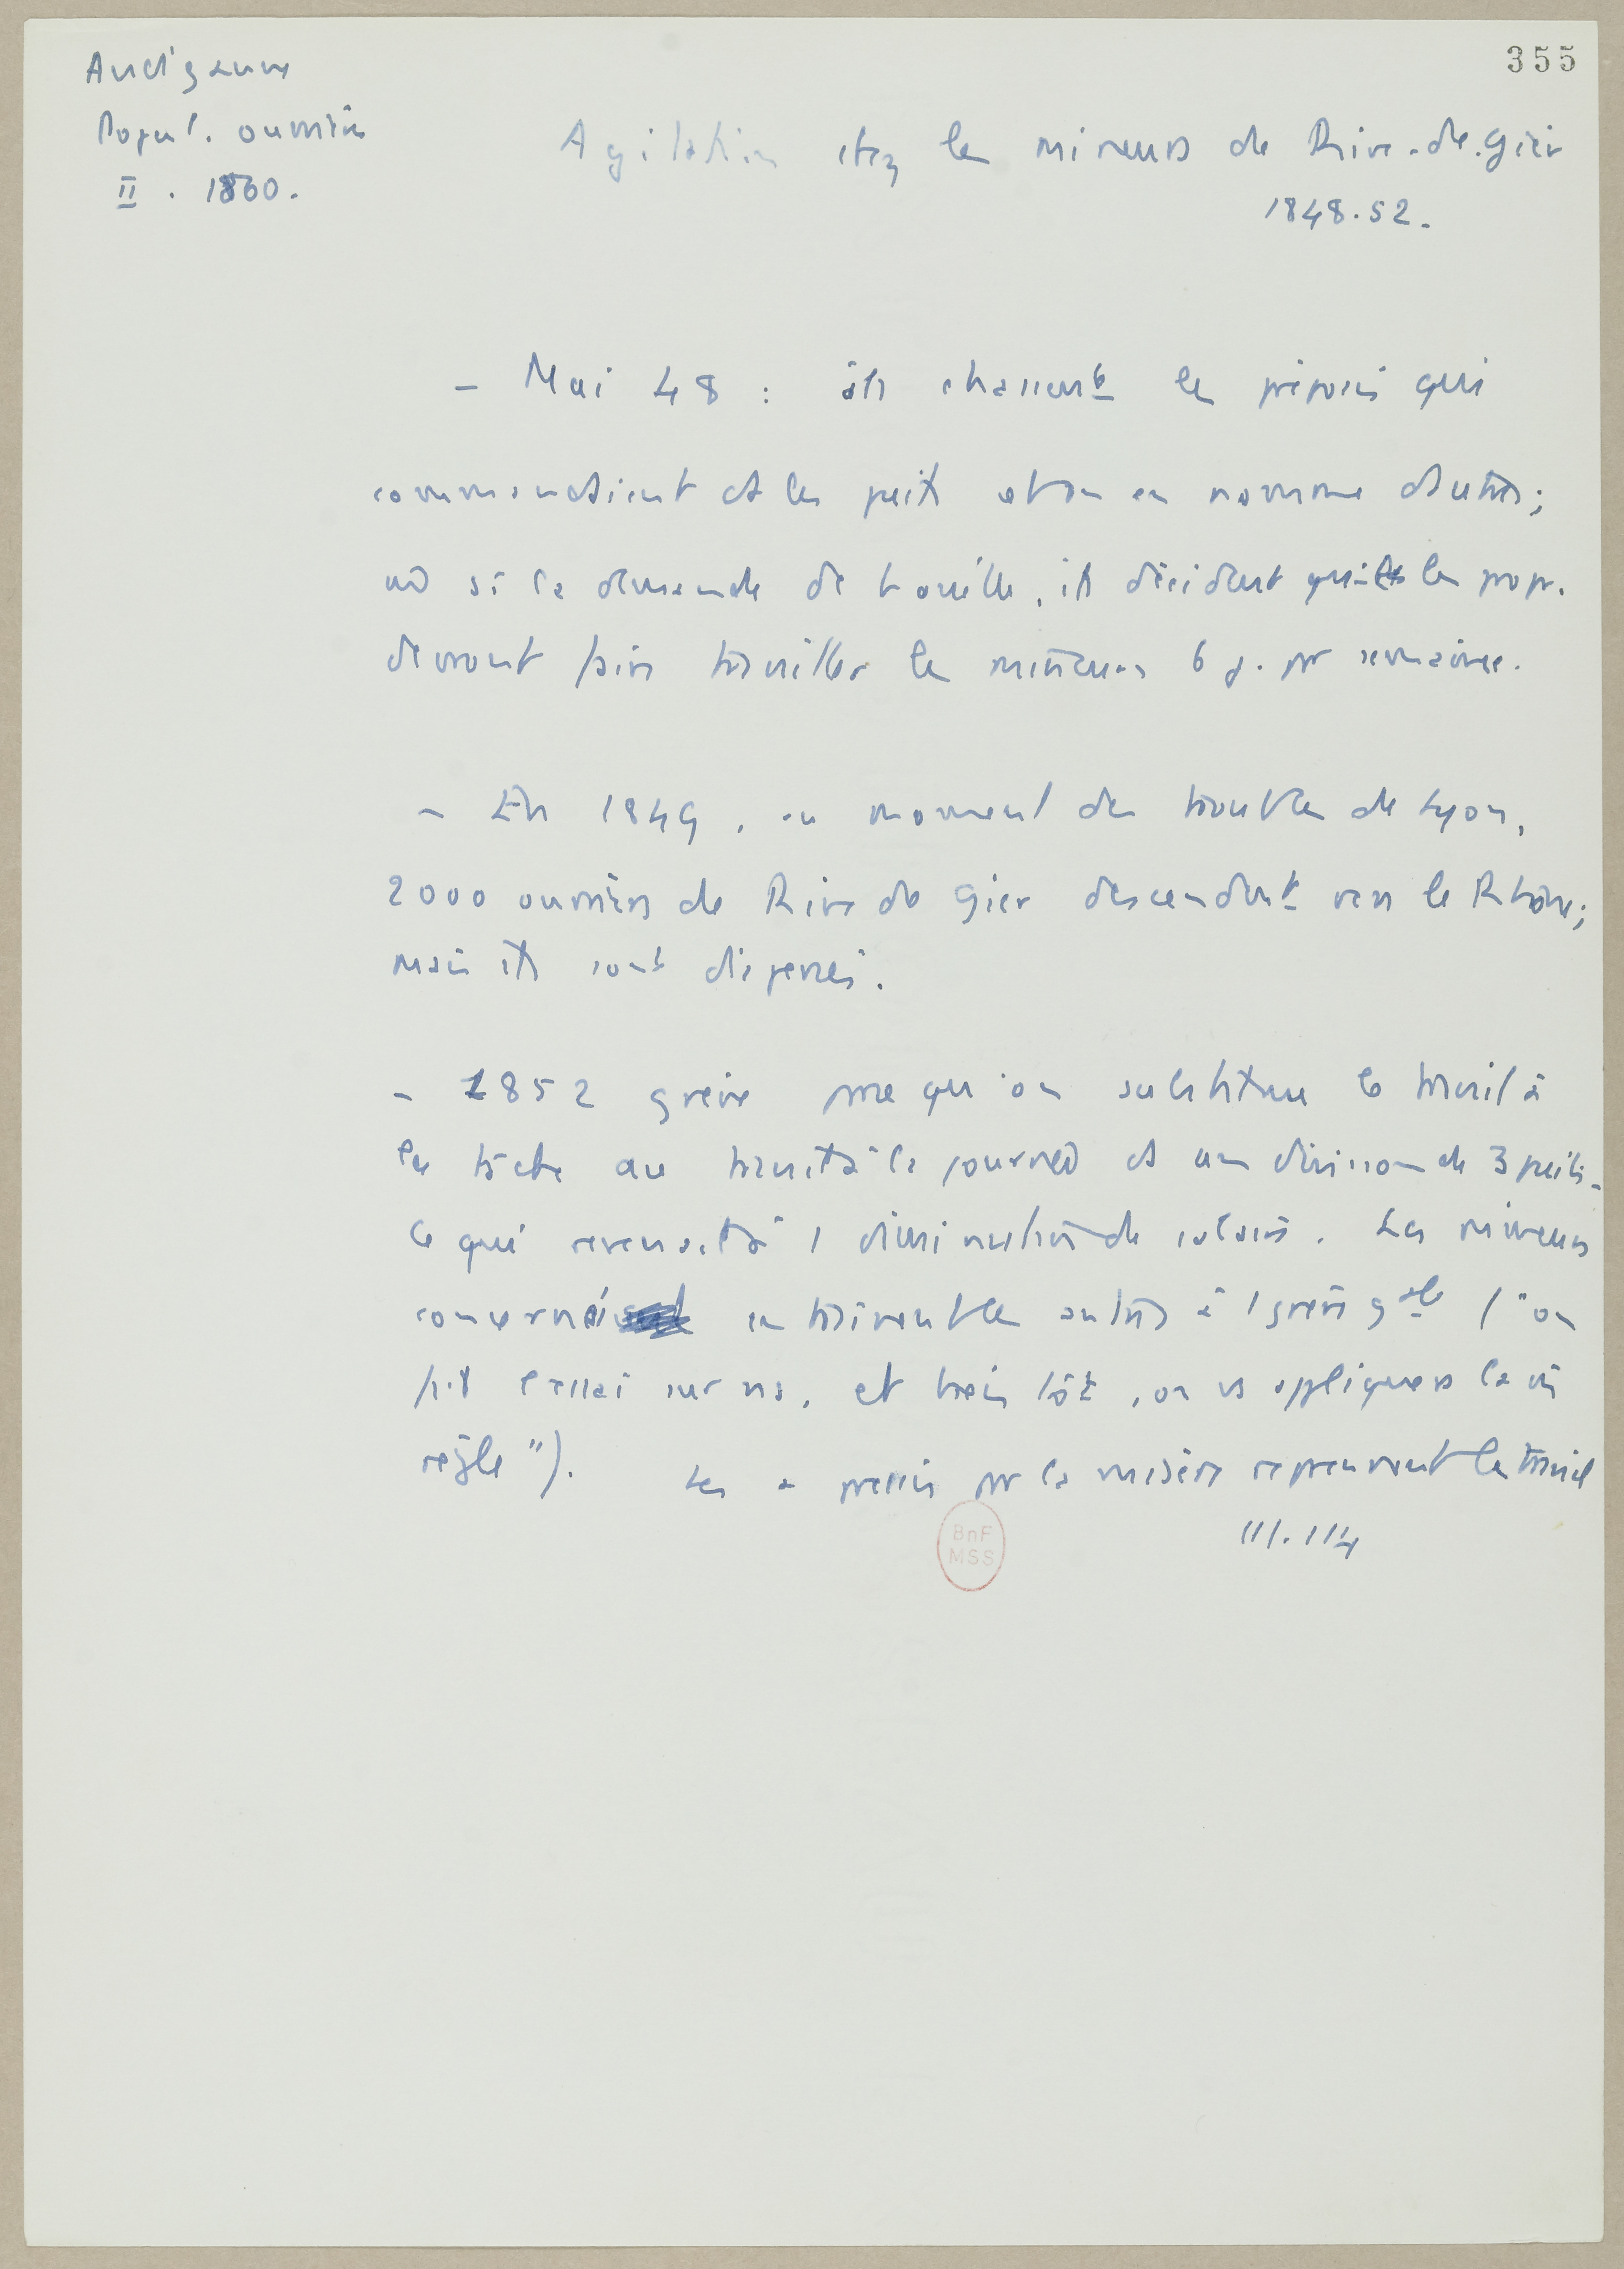 355
Audiganne
Popul. ouvrière
II. 1860.
Agitation chez les mineurs de Rive-de-Gier
1848.52.
- Mai 48 : ils chassent les préposés qui
commandaient ds les puits et on en nomme d'autres;
vu la demande de houille, ils décident que les propr.
devront faire travailler les mineurs 6 j. par semaine.
- En 1849, au moment des troubles de Lyon,
2000 ouvriers de Rive de Gier descendent vers le Rhône;
mais ils sont dispersés.
- 1852 grève parce qu'on substitue le travail à
la tâche au travail à la journée ds une division de 3 puits.
Ce qui revenait à 1 diminution de salaires. Les mineurs
concernés entraînent les autres à 1 grève gale ("on
fait l'essai sur ns, et bientôt, on vs appliquera la m̄
règle"). Les pressés par la misère reprennent le travail
III. 114
BnF
MSS